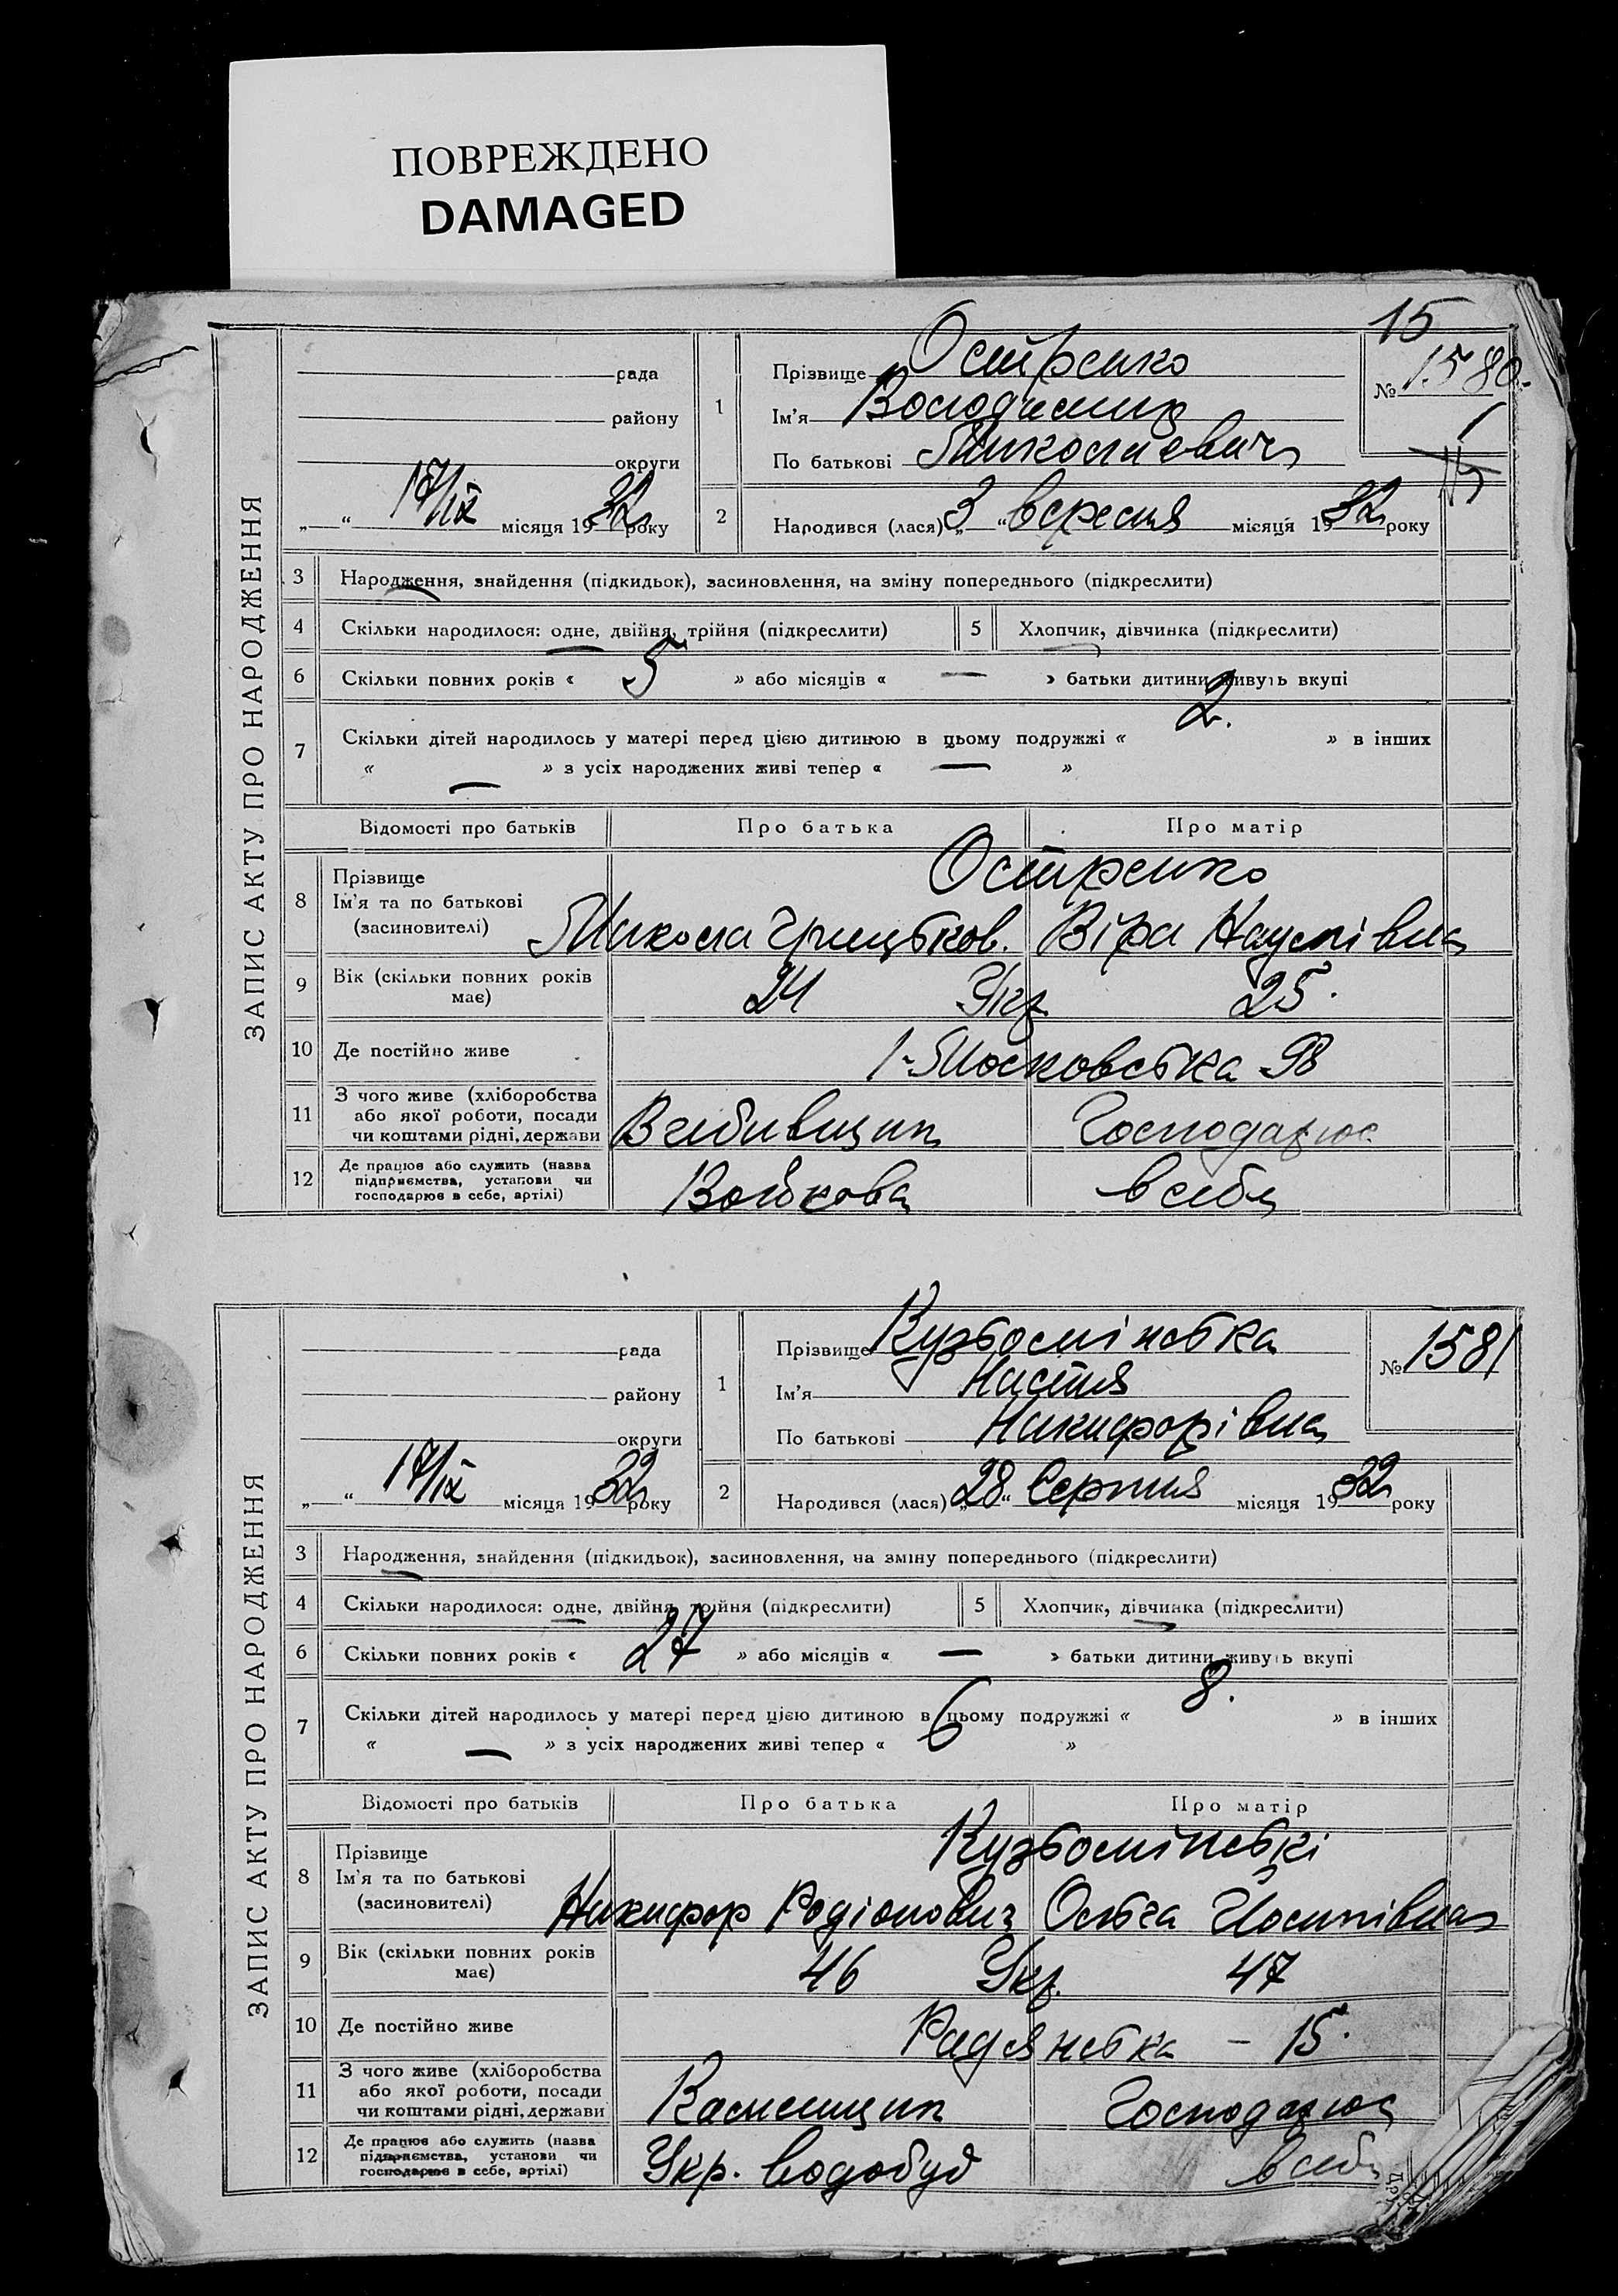 ПОВРЕЖДЕНО
DAMAGED
15
ЗАПИС АКТУ ПРО НАРОДЖЕННЯ
рада
району
округи
„ “ 17/IX місяця 1932 року
1 Прізвище Остренко
Ім'я Володимир
По батькові Миколаєвич
№ 1580
2 Народився (лася) „3“ вересня місяця 1932 року
3 Народження, знайдення (підкидьок), засиновлення, на зміну попереднього (підкреслити)
4 Скільки народилося: одне, двійня, трійня (підкреслити) 5 Хлопчик, дівчинка (підкреслити)
6 Скільки повних років « 5 » або місяців « — » батьки дитини живуть вкупі
7 Скільки дітей народилось у матері перед цією дитиною в цьому подружжі « 2. » в інших
« — » з усіх народжених живі тепер « — »
Відомості про батьків Про батька Про матір
8 Прізвище Остренко
Ім'я та по батькові
(засновителі) Микола Грицьков. Віра Наумівна
9 Вік (скільки повних років має) 24 Укр 25.
10 Де постійно живе 1-Московська 98
11 З чого живе (хліборобства
або якої роботи, посади
чи коштами рідні, держави Господарює
12 Де працює або служить (назва
підприємства, установи чи
господарює в себе, артілі) Войкова в себе
ЗАПИС АКТУ ПРО НАРОДЖЕННЯ
рада
району
округи
„ “ 17/IX місяця 1932 року
1 Прізвище Кузьомінська
Ім'я Настя
По батькові Никифорівна
№ 1581
2 Народився (лася) „28“ Серпня місяця 1932 року
3 Народження, знайдення (підкидьок), засиновлення, на зміну попереднього (підкреслити)
4 Скільки народилося: одне, двійня, трійня (підкреслити) 5 Хлопчик, дівчинка (підкреслити)
6 Скільки повних років « 27 » або місяців « — » батьки дитини живуть вкупі
7 Скільки дітей народилось у матері перед цією дитиною в цьому подружжі « 8. » в інших
« — » з усіх народжених живі тепер « 6 »
Відомості про батьків Про батька Про матір
8 Прізвище Кузьомінські
Ім'я та по батькові
(засиновителі) Никифор Родіонович Ольга Йосипівна
9 Вік (скільки повних років має) 46 Укр. 47
10 Де постійно живе Радянська - 15.
11 З чого живе (хліборобства
або якої роботи, посади
чи коштами рідні, держави Каменщик Господарює
12 Де працює або служить (назва
підприємства, установи чи
господарює в себе, артілі) Укр. водобуд в себе